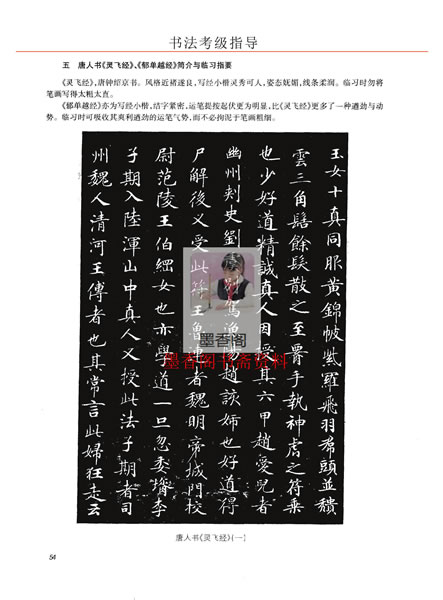 书法考级指导
五　唐人书《灵飞经》、《郁单越经》简介与临习指要
《灵飞经》,唐钟绍京书。风格近褚遂良,写经小楷灵秀可人,姿态妩媚,线条柔润。临习时勿将
笔画写得太粗太直。
《郁单越经》亦为写经小楷,结字紧密,运笔提按起伏更为明显,比《灵飞经》更多了一种遒劲与动
势。临习时可吸收其爽利遒劲的运笔气势,而不必拘泥于笔画粗细。
玉女十真同服黄錦帔紫羅飛羽帬頭並頽
雲三角髻餘髮散之至𦝫手執神虎之符乗
也少好道精誠真人因受其六甲趙愛兒者
幽州刾史劉虞別駕漁陽趙該姊也好道得
尸解後又受此符王魯連者魏明帝城門校
尉范陵王伯綱女也亦學道一旦忽委壻李
子期入陸渾山中真人又授此法子期者司
州魏人清河王傅者也其常言此婦狂走云
墨香阁
墨香阁书斋资料
唐人书《灵飞经》(一)
54